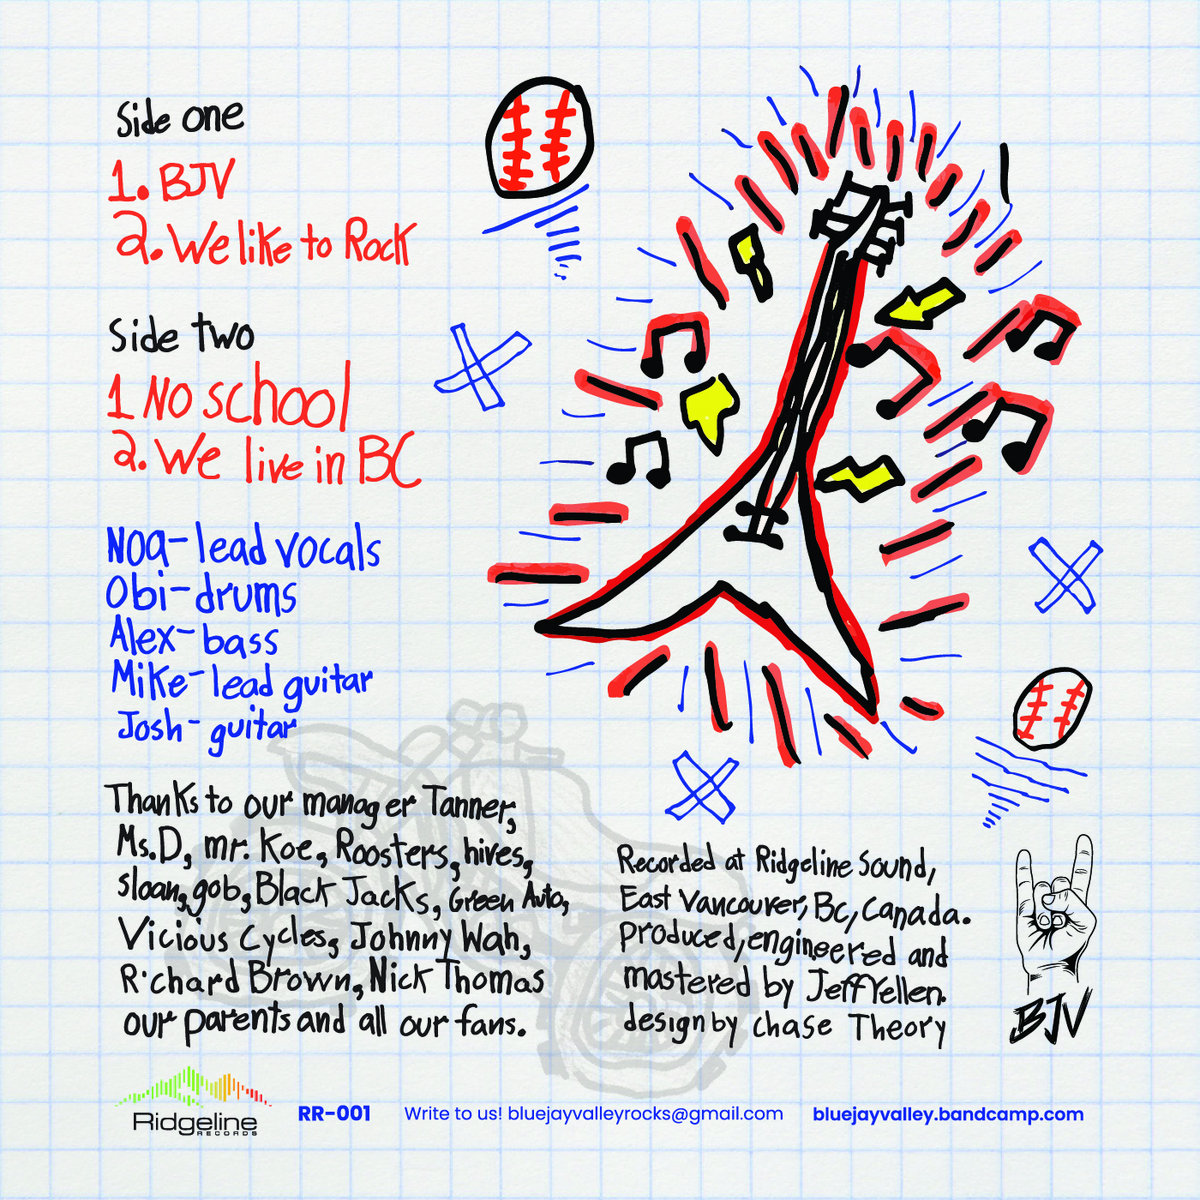 Side one
1. BJV
2. We like to Rock
Side two
1 No school
2. We live in BC
Noa-lead vocals
Obi-drums
Alex-bass
Mike-lead guitar
Josh-guitar
Thanks to our manager Tanner,
Ms.D, mr. Koe, Roosters, hives,
sloan, gob, Black Jacks, Green Auto,
Vicious Cycles, Johnny Wah,
Richard Brown, Nick Thomas
our parents and all our fans.
Recorded at Ridgeline Sound,
East Vancouver, BC, Canada.
Produced, engineered and
mastered by Jeff Yellen.
design by chase Theory
BJV
Ridgeline
RECORDS
RR-001
Write to us! bluejayvalleyrocks@gmail.com
bluejayvalley.bandcamp.com